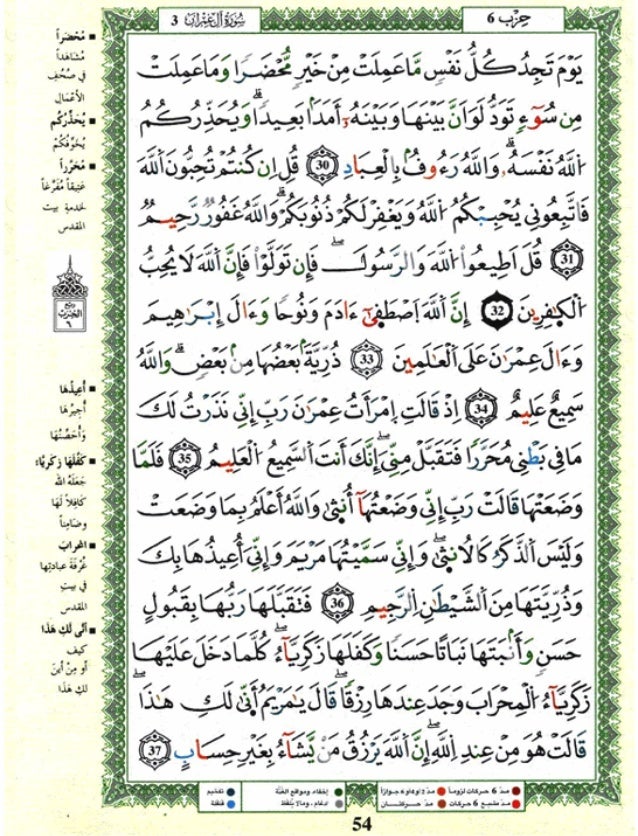 حِزْب 6
سُورَةُ آلِ عِمْرَان 3
يَوْمَ تَجِدُ كُلُّ نَفْسٍ مَّا عَمِلَتْ مِنْ خَيْرٍ مُّحْضَرًا وَمَا عَمِلَتْ
مِن سُوٓءٍ تَوَدُّ لَوَ اَنَّ بَيْنَهَا وَبَيْنَهُۥ أَمَدَۢا بَعِيدًاۖ وَيُحَذِّرُكُمُ
اُللَّهُ نَفْسَهُۥۖ وَاللَّهُ رَءُوفُۢ بِالْعِبَادِ 30 قُلِ اِن كُنتُمْ تُحِبُّونَ اَللَّهَ
فَاتَّبِعُونِي يُحْبِبْكُمُ اُللَّهُ وَيَغْفِرْ لَكُمْ ذُنُوبَكُمْۖ وَاللَّهُ غَفُورٌ رَّحِيمٌ
31 قُلَ اَطِيعُوا اُللَّهَ وَالرَّسُولَۖ فَإِن تَوَلَّوْا فَإِنَّ اَللَّهَ لَا يُحِبُّ
اُلْكَٰفِرِينَ 32 إِنَّ اَللَّهَ اَصْطَفَىٰٓ ءَادَمَ وَنُوحًا وَءَالَ إِبْرَٰهِيمَ
وَءَالَ عِمْرَٰنَ عَلَى اَلْعَٰلَمِينَ 33 ذُرِّيَّةَۢ بَعْضُهَا مِنۢ بَعْضٍۖ وَاللَّهُ
سَمِيعٌ عَلِيمٌ 34 إِذْ قَالَتِ اِمْرَأَتُ عِمْرَٰنَ رَبِّ إِنِّي نَذَرْتُ لَكَ
مَا فِي بَطْنِي مُحَرَّرًا فَتَقَبَّلْ مِنِّيٓۖ إِنَّكَ أَنتَ اَلسَّمِيعُ اُلْعَلِيمُ 35 فَلَمَّا
وَضَعَتْهَا قَالَتْ رَبِّ إِنِّي وَضَعْتُهَآ أُنثَىٰ وَاللَّهُ أَعْلَمُ بِمَا وَضَعَتْ
وَلَيْسَ اَلذَّكَرُ كَالُانثَىٰۖ وَإِنِّي سَمَّيْتُهَا مَرْيَمَ وَإِنِّيَ أُعِيذُهَا بِكَ
وَذُرِّيَّتَهَا مَِنَ اَلشَّيْطَٰنِ اِلرَّجِيمِ 36 فَتَقَبَّلَهَا رَبُّهَا بِقَبُولٍ
حَسَنٍ وَأَنۢبَتَهَا نَبَاتًا حَسَنًا وَكَفَلَهَا زَكَرِيَّآءُۖ كُلَّمَا دَخَلَ عَلَيْهَا
زَكَرِيَّآءُ اُلْمِحْرَابَ وَجَدَ عِندَهَا رِزْقًاۖ قَالَ يَٰمَرْيَمُ أَنَّىٰ لَكِ هَٰذَاۖ
قَالَتْ هُوَ مِنْ عِندِ اِللَّهِۖ إِنَّ اَللَّهَ يَرْزُقُ مَنْ يَّشَآءُ بِغَيْرِ حِسَابٍ 37
■ مُحْضَراً
مُشَاهَداً
فِي صُحُفِ
الأَعْمَالِ
■ يُحَذِّرُكُم
يُخَوِّفُكُمْ
■ مُحَرَّراً
عَتِيقاً مُفَرَّغاً
لخدمة بيت
المقدس
ربع
الحزب
٦
■ أُعِيذُهَا
أُجِيرُهَا
وَأُحَصِّنُهَا
■ كَفَّلَهَا زَكَرِيَّاءُ
جَعَلَهُ الله
كَافِلاً لَهَا
وضَامِناً
■ المِحْرابَ
غُرْفَةَ عِبادتِها
في بيتِ
المقدس
■ أَنَّى لَكِ هَذَا
كيف
أو مِنْ أينَ
لكِ هَذَا
مدّ 6 حركات لزوماً
مدّ 2 أو 4 أو 6 جوازاً
إخفاء، ومواقع الغُنَّة
تفخيم
مدّ مشبع 6 حركات
مدّ حركتان
ادغام، وما لا يُلفظ
قلقلة
54